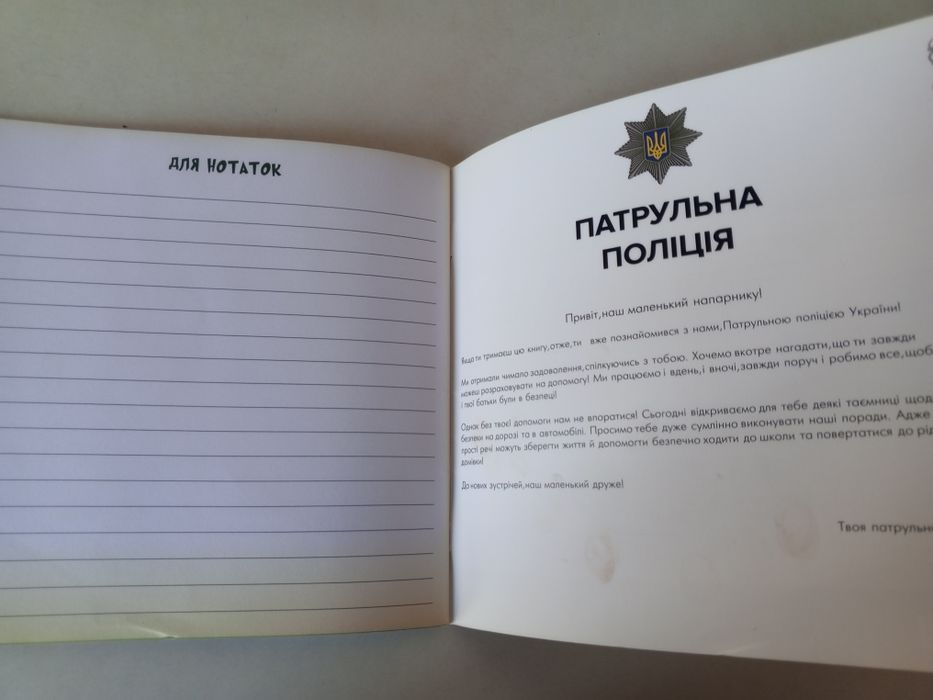 ДЛЯ НОТАТОК
ПАТРУЛЬНА
ПОЛІЦІЯ
Привіт,наш маленький напарнику!
Якщо ти тримаєш цю книгу,отже,ти вже познайомився з нами,Патрульною поліцією України!
Ми отримали чимало задоволення,спілкуючись з тобою. Хочемо вкотре нагадати,що ти завжди
можеш розраховувати на допомогу! Ми працюємо і вдень,і вночі,завжди поруч і робимо все,щоб
і твої батьки були в безпеці!
Однак без твоєї допомоги нам не впоратися! Сьогодні відкриваємо для тебе деякі таємниці
безпеки на дорозі та в автомобілі. Просимо тебе дуже сумлінно виконувати наші поради. Адже
прості речі можуть зберегти життя й допомогти безпечно ходити до школи та повертатися до
домівки!
До нових зустрічей,наш маленький друже!
Твоя